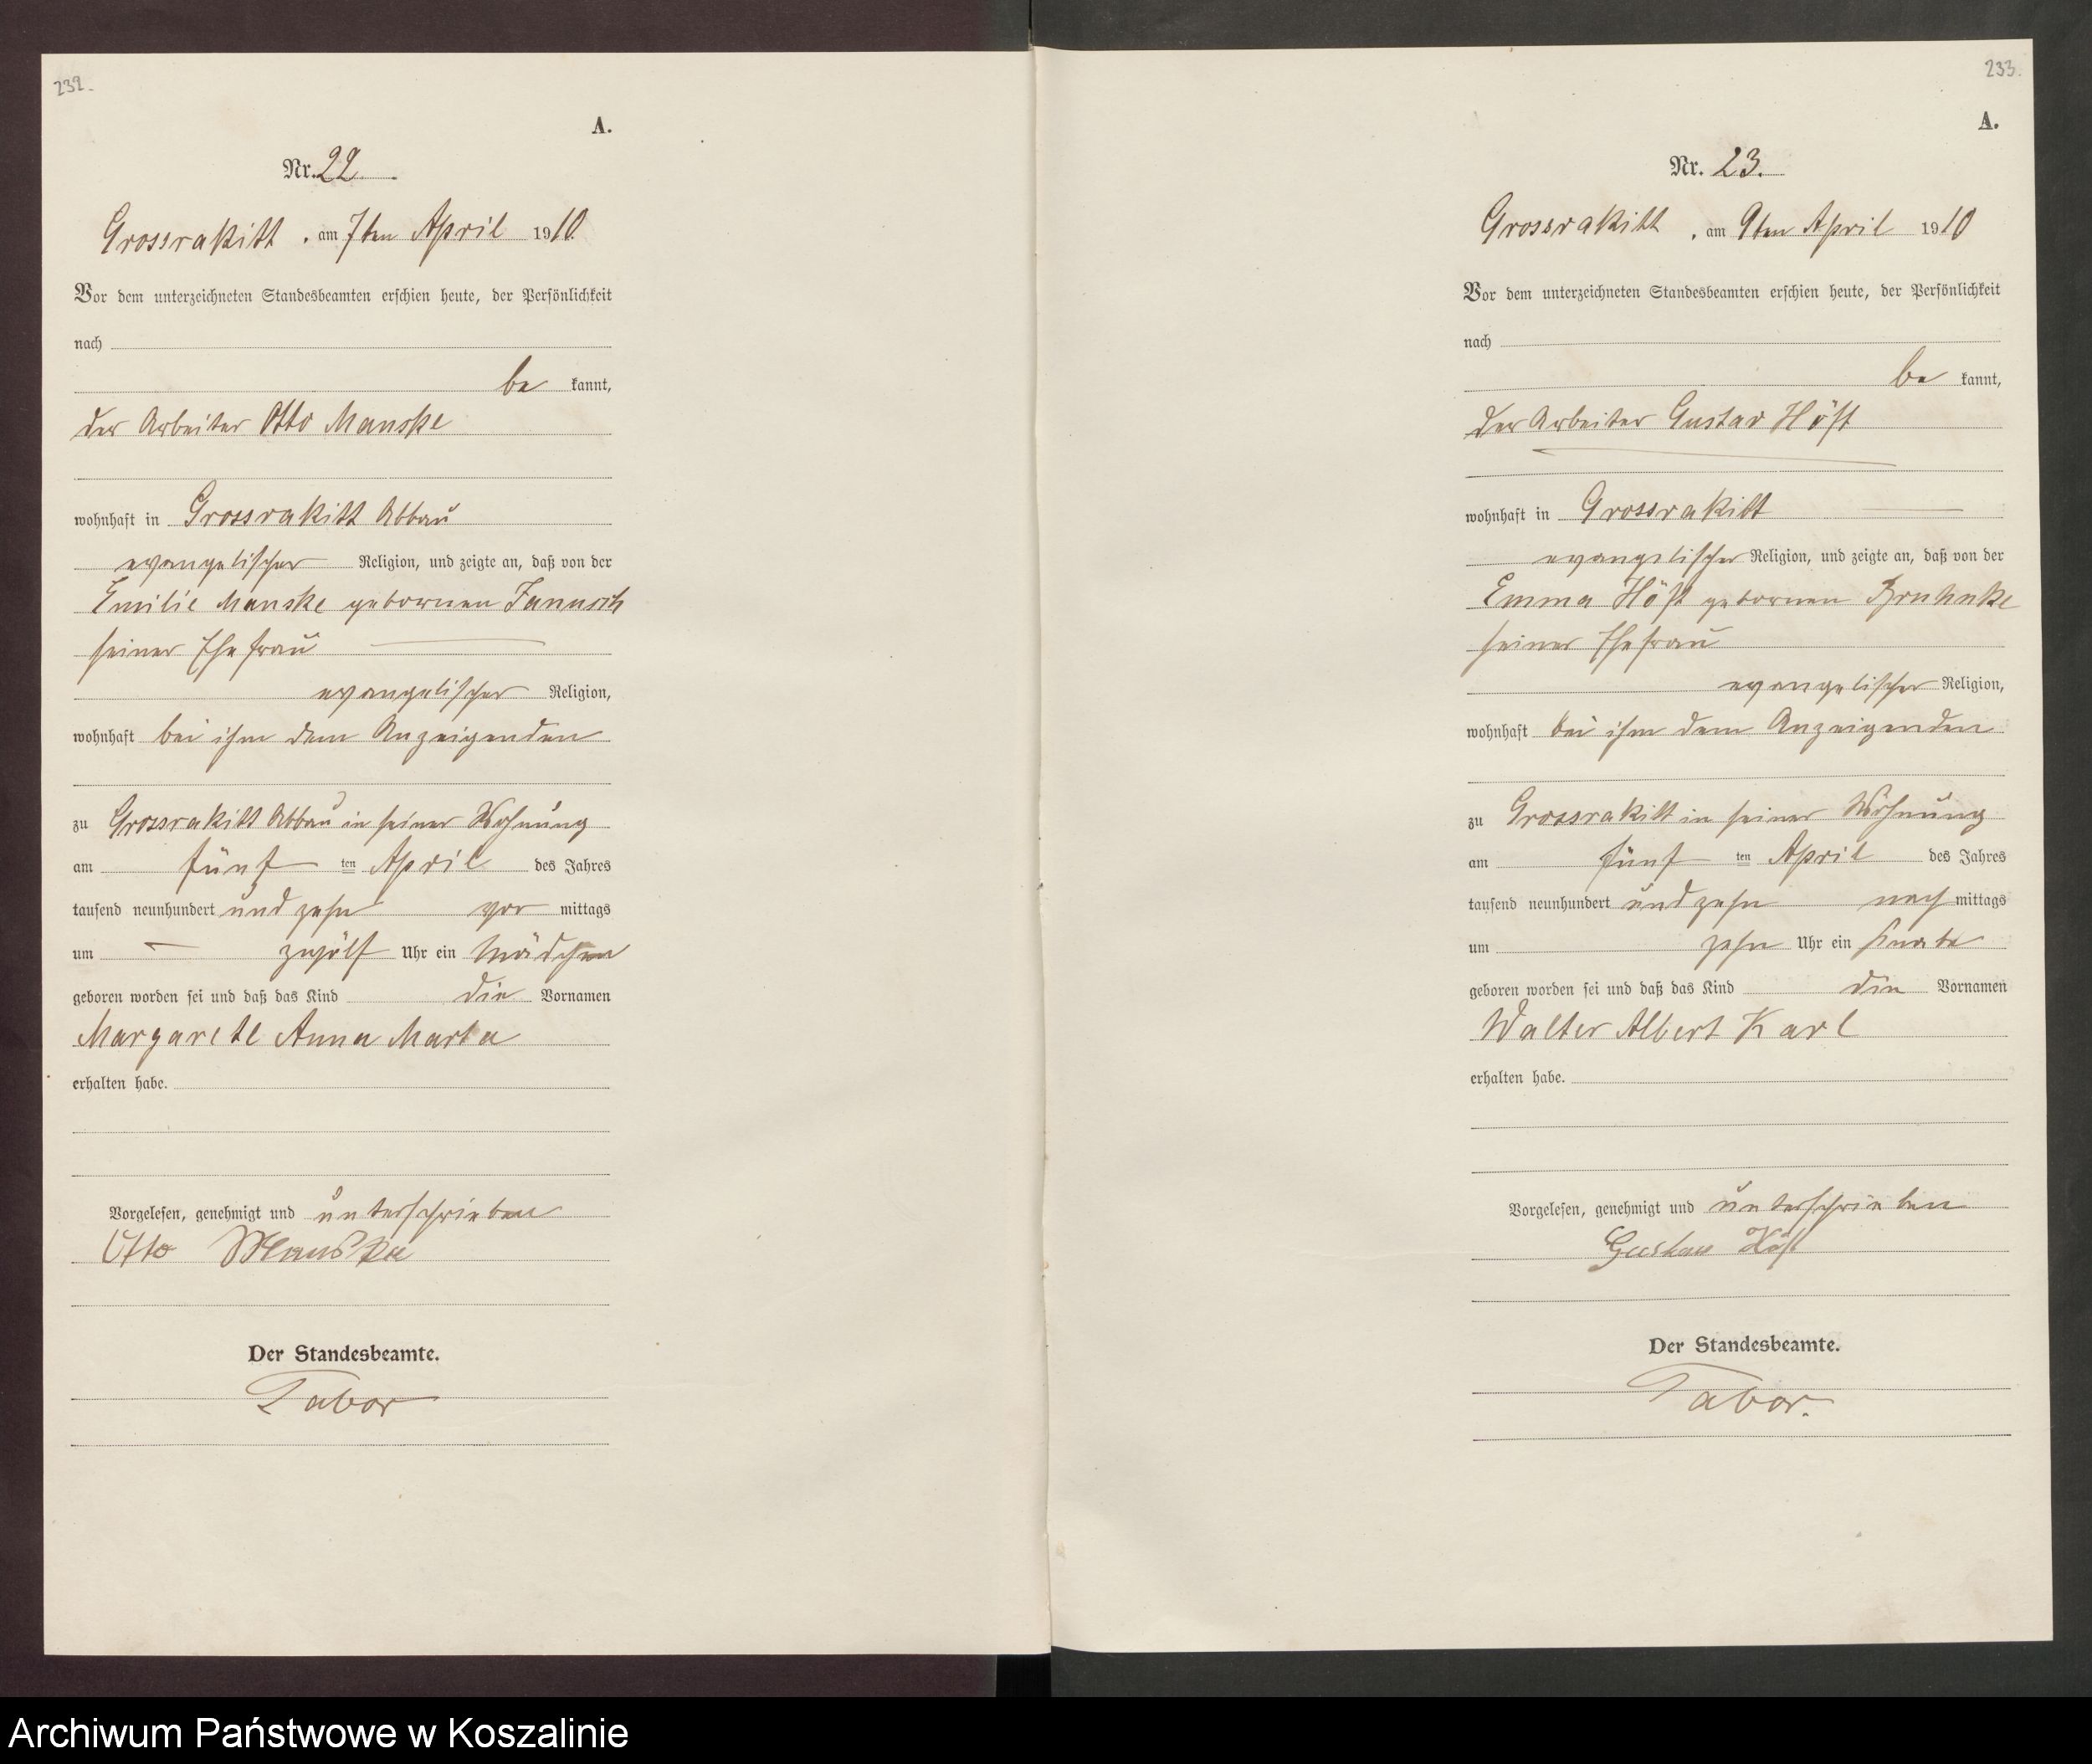 232.
A.
Nr. 22.
Grossrakitt, am 7ten April 1910.
Vor dem unterzeichneten Standesbeamten erschien heute, der Persönlichkeit
nach
be kannt,
der Arbeiter Otto Manske
wohnhaft in Grossrakitt Abbau
evangelischer Religion, und zeigte an, daß von der
Emilie Manske gebornen
seiner Ehefrau
evangelischer Religion,
wohnhaft bei ihm dem Anzeigenden
zu Grossrakitt Abbau in seiner Wohnung
am fünf ten April des Jahres
tausend neunhundert und zehn vor mittags
um zwölf Uhr ein Mädchen
geboren worden sei und daß das Kind die Vornamen
Margarete Anna Marta
erhalten habe.
Vorgelesen, genehmigt und unterschrieben
Otto Manske
Der Standesbeamte.
Tabor
233.
A.
Nr. 23.
Grossrakitt, am 9ten April 1910
Vor dem unterzeichneten Standesbeamten erschien heute, der Persönlichkeit
nach
be kannt,
der Arbeiter Gustav Höft
wohnhaft in Grossrakitt
evangelischer Religion, und zeigte an, daß von der
Emma Höft gebornen
seiner Ehefrau
evangelischer Religion,
wohnhaft bei ihm dem Anzeigenden
zu Grossrakitt in seiner Wohnung
am fünf ten April des Jahres
tausend neunhundert und zehn nach mittags
um zehn Uhr ein Knabe
geboren worden sei und daß das Kind die Vornamen
Walter Albert Karl
erhalten habe.
Vorgelesen, genehmigt und unterschrieben
Gustav Höft
Der Standesbeamte.
Tabor.
Archiwum Państwowe w Koszalinie